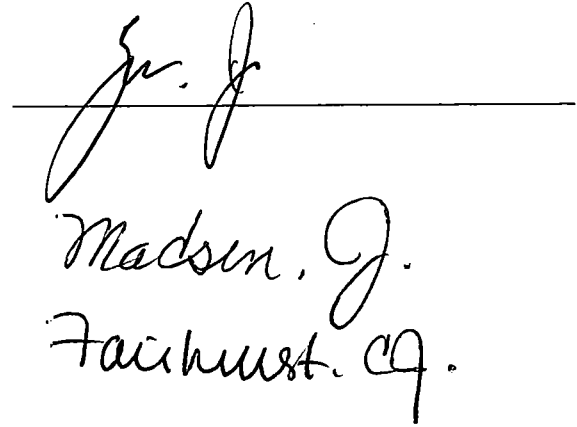 Yu, J.
Madsen, J.
Fairhurst, CJ.